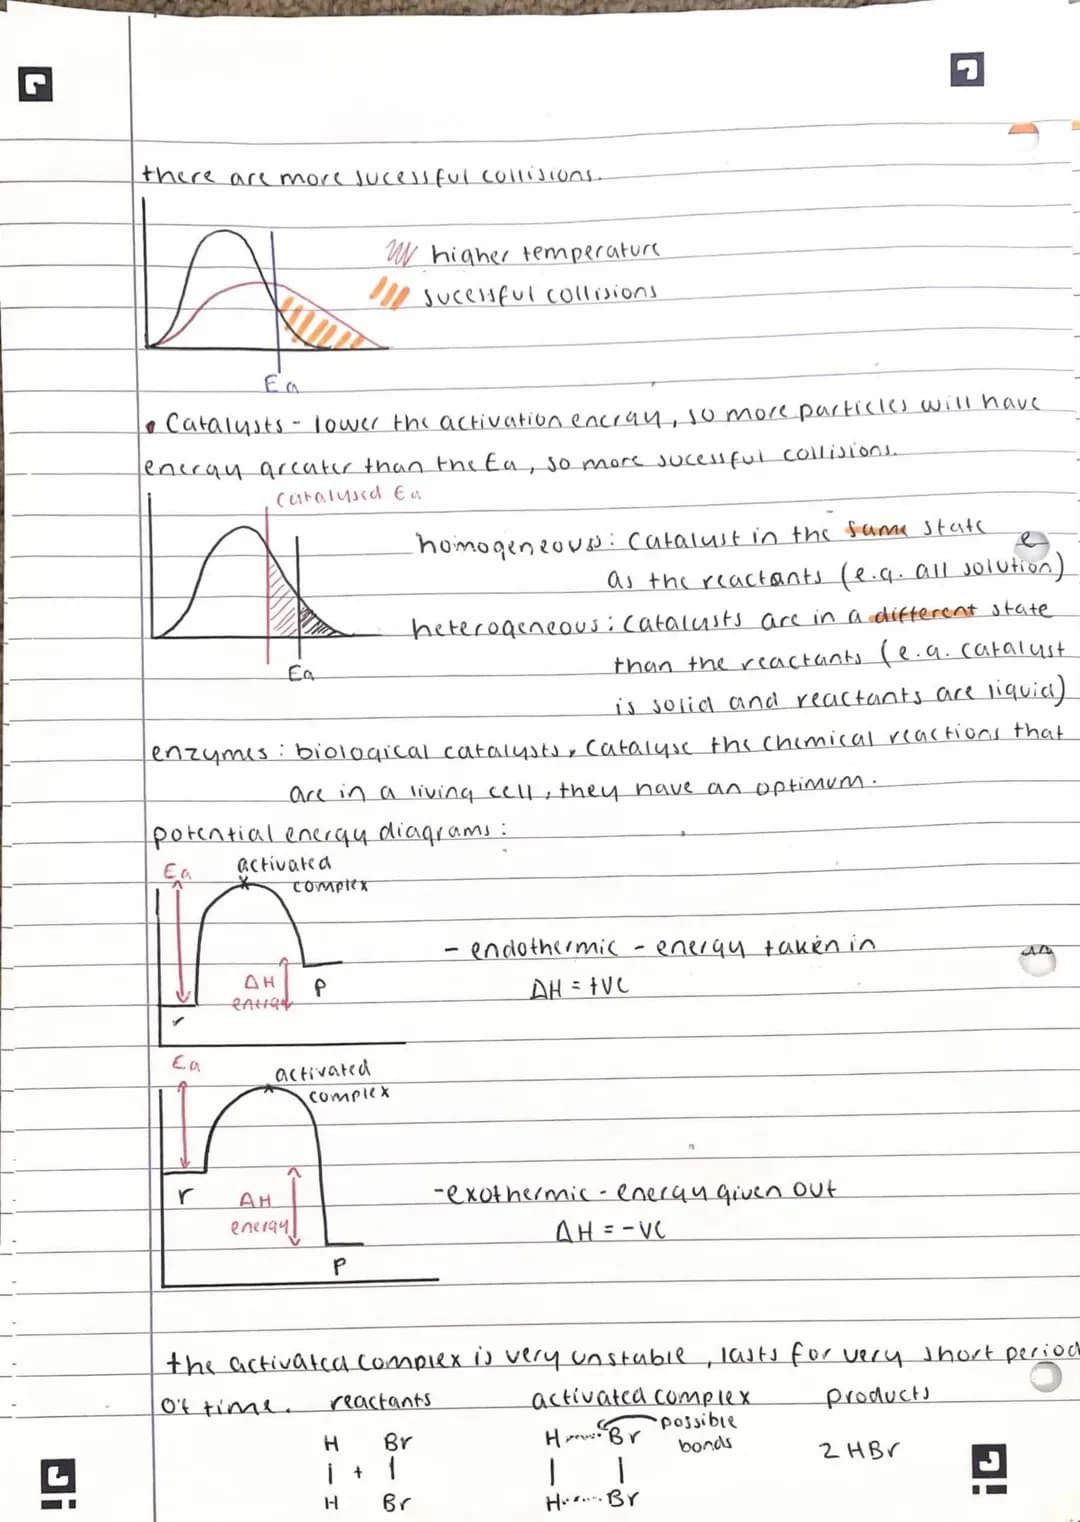 there are more sucessful collisions.
higher temperature
sucessful collisions
Ea
• Catalysts - lower the activation energy, so more particles will have
energy greater than the Ea, so more sucessful collisions.
Catalysed Ea
homogeneous: Catalyst in the same state
as the reactants (e.g. all solution)
heterogeneous: Catalysts are in a different state
than the reactants (e.g. catalyst
is solid and reactants are liquid)
Ea
enzymes: biological catalysts, catalyse the chemical reactions that
are in a living cell, they have an optimum.
potential energy diagrams:
Ea activated
complex
- endothermic - energy taken in
ΔH = +ve
ΔH
energy
P
r
Ea
activated
complex
r
ΔH
energy
-exothermic - energy given out
ΔH = -ve
P
the activated complex is very unstable, lasts for very short period
of time. reactants activated complex products
H Br H Br possible
bonds
+ 2 HBr
H Br H Br